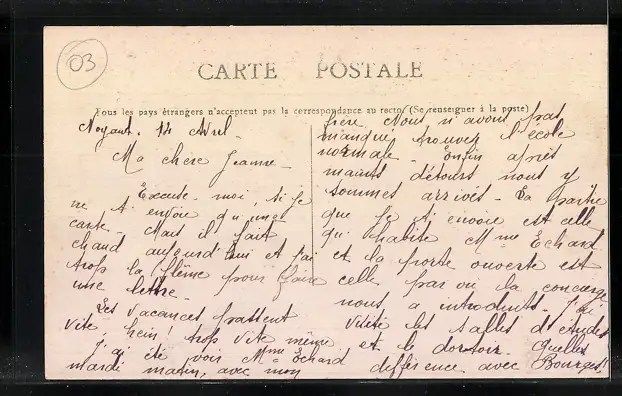 03
CARTE POSTALE
Tous les pays étrangers n'acceptent pas la correspondance au recto (Se renseigner à la poste)
Noyant. 12 Avril
Ma chère Jeanne -
Excuse-moi, si je
ne t'envoie qu'une
carte. Mais il fait
chaud aujourd'hui et j'ai
trop la flême pour faire
une lettre.
Les vacances passent
vite, hein! trop vite même
j'ai été voir Mme Echard
mardi matin, avec mon
frère. Nous n'avons pas
manqué trouver l'école
normale. Enfin après
maints détours nous y
sommes arrivés - La partie
que je t'envoie est celle
qu'habite Mme Echard
et la porte ouverte est
celle par où la concierge
nous a introduits. J'ai
visité les salles d'études
et le dortoir. Quelles
différence avec Bourges!